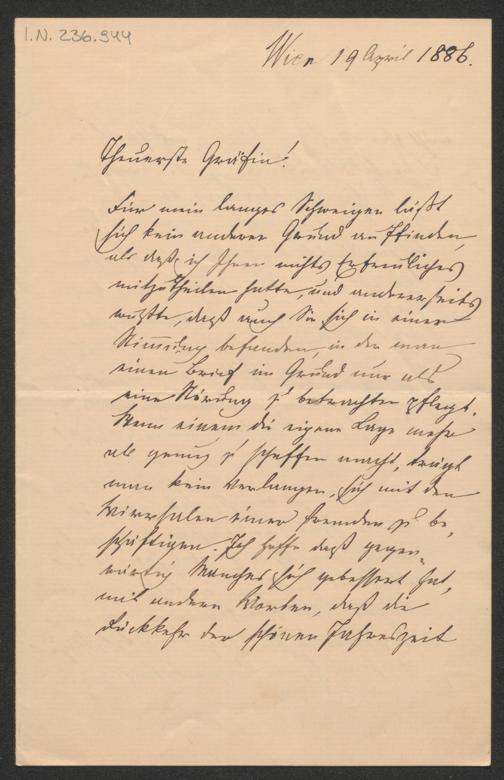 I.N. 236.944
Wien 19 April 1886.
Theuerste Gräfin!
Für mein langes Schweigen läßt
sich kein anderer Grund auffinden,
als daß ich Ihnen nichts Erfreuliches
mitzutheilen hatte, und andererseits
wußte, daß auch Sie sich in einer
Stimmung befanden, in der man
einen Brief im Grund nur als
eine Störung zu betrachten pflegt.
Wenn einem die eigene Lage mehr
als genug zu schaffen macht, trägt
man kein Verlangen, sich mit den
einer fremden zu be¬
schäftigen. Ich hoffe daß gegen¬
wärtig Manches sich gebessert hat,
mit andern Worten, daß die
Rückkehr der schönen Jahreszeit